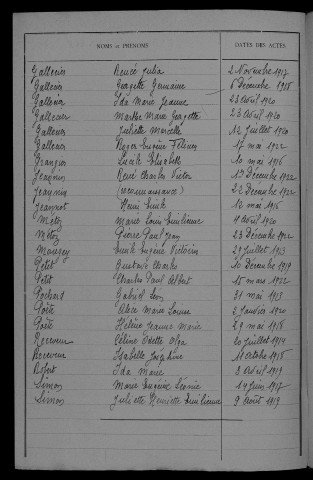 NOMS ET PRÉNOMS DATES DES ACTES
Gallecier Renée Julia 2 Novembre 1917
Gallecier Georgette Germaine 6 Décembre 1918
Gallecier Ida Marie Jeanne 23 Avril 1920
Gallecier Marthe Marie Georgette 23 Avril 1920
Gallecier Juliette Marcelle 12 Juillet 1920
Gallecier Roger Eugène 17 mai 1922
Grangier Lucile Elisabeth 10 mai 1916
Jeannin René Charles Victor 13 Décembre 1922
Jeannin (reconnaissance) 22 Décembre 1922
Jeannot Henri Emile 16 mai 1916
Métoz Marie Louise Emilienne 4 Avril 1920
Métoz Pierre Paul Jean 23 Décembre 1922
Mougey Emile Eugène Victorin 29 Juillet 1913
Petit Gustave Charles 10 Décembre 1919
Petit Charles Paul Albert 15 mars 1922
Gabriel Léon 31 mai 1913
Poète Alice Marie Louise 2 Janvier 1920
Poète Hélène Jeanne Marie 29 mai 1916
Receveur Céline Odette Olga 20 Juillet 1914
Receveur Isabelle Joséphine 11 Octobre 1918
Robert Ida Marie 3 Avril 1919
Simon Marie Eugénie Léonie 14 Juin 1917
Simon Juliette Henriette Emilienne 9 Août 1919